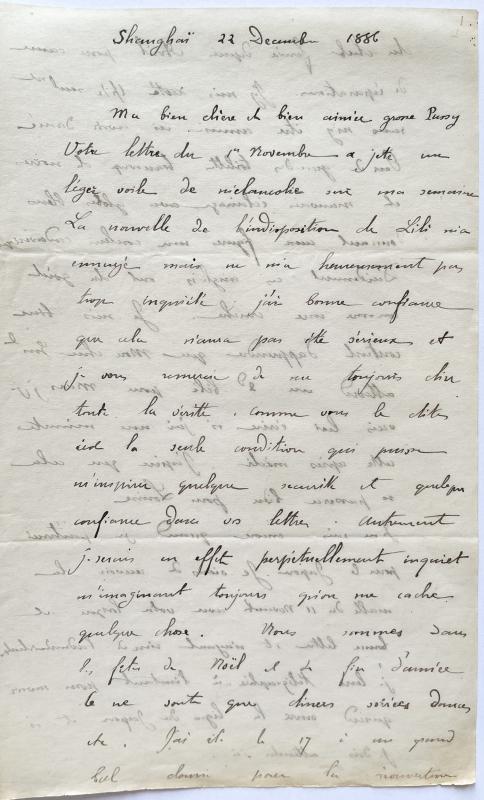 Shanghaï 22 Decembre 1886
Ma bien chère et bien aimée grosse Pussy
Votre lettre du 1er Novembre a jeté un
léger voile de mélancolie sur ma semaine
La nouvelle de l'indisposition de Lili m'a
ennuyé mais ne m'a heureusement pas
trop inquiété j'ai bonne confiance
que cela n'aura pas été sérieux et
je vous remercie de me toujours dire
toute la vérité. comme vous le dites
c'est la seule condition qui puisse
m'inspirer quelque securité et quelque
confiance dans vos lettres. autrement
je serais en effet perpétuellement inquiet
m'imaginant toujours qu'on me cache
quelque chose. Nous sommes dans
les fetes de Noël et de fin d'année
Ce ne sont que diners soirées danses
etc. J'ai été le 17 à un grand
bal donné pour la